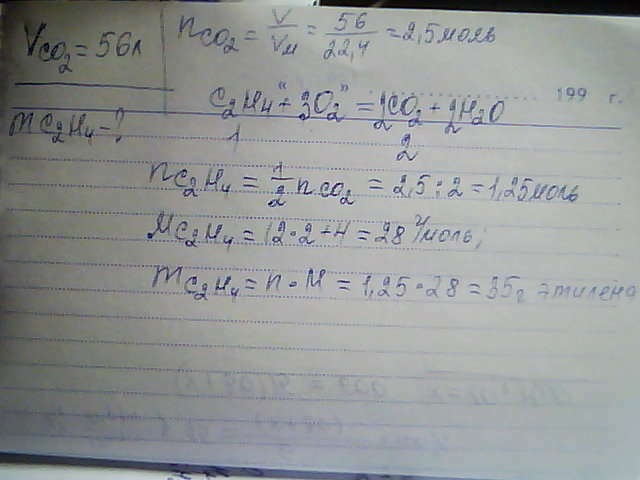 V CO₂ = 56л
n CO₂ = V/Vм = 56/22,4 = 2,5 моль
199 г.
C₂H₄ + 3O₂ = 2CO₂ + 2H₂O
m C₂H₄ - ?
1 2
n C₂H₄ = 1/2 n CO₂ = 2,5 : 2 = 1,25 моль
M C₂H₄ = 12 · 2 + 4 = 28 г/моль;
m C₂H₄ = n · M = 1,25 · 28 = 35г этилена